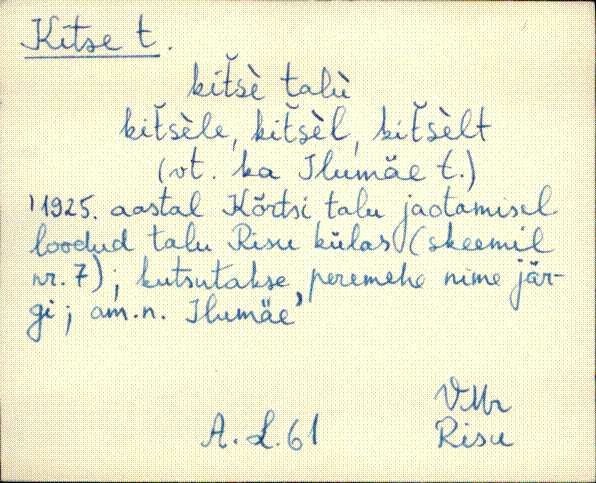 Kitse t.
kit̆sè talù
kit̆sèle, kit̆sèl, kit̆sèlt
(vt. ka Ilumäe t.)
'1925. aastal Kõrtsi talu jaotamisel
loodud talu Risu külas (skeemil
nr. 7); kutsutakse peremehe nime jär-
gi; am.n. Ilumäe'
VMr
A. L. 61 Risu